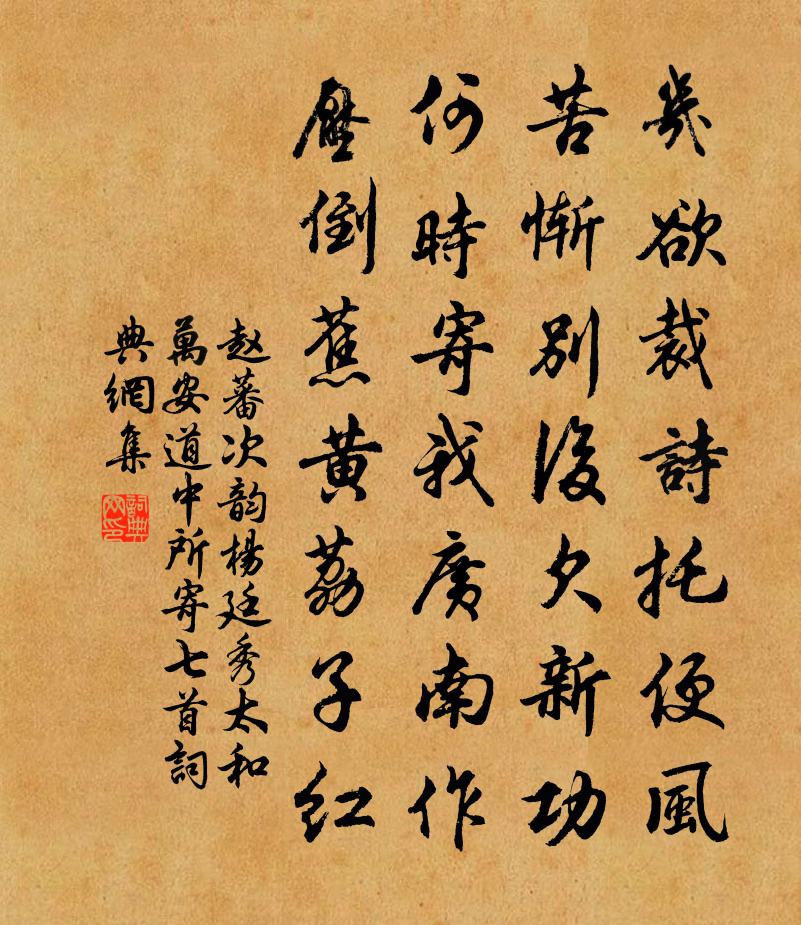 幾欲裁詩托便風
苦慚別後欠新功
何時寄我廣南作
壓倒蕉黄荔子紅
赵蕃次韵楊廷秀太和
萬安道中所寄七首詞
典網集
詞典網印